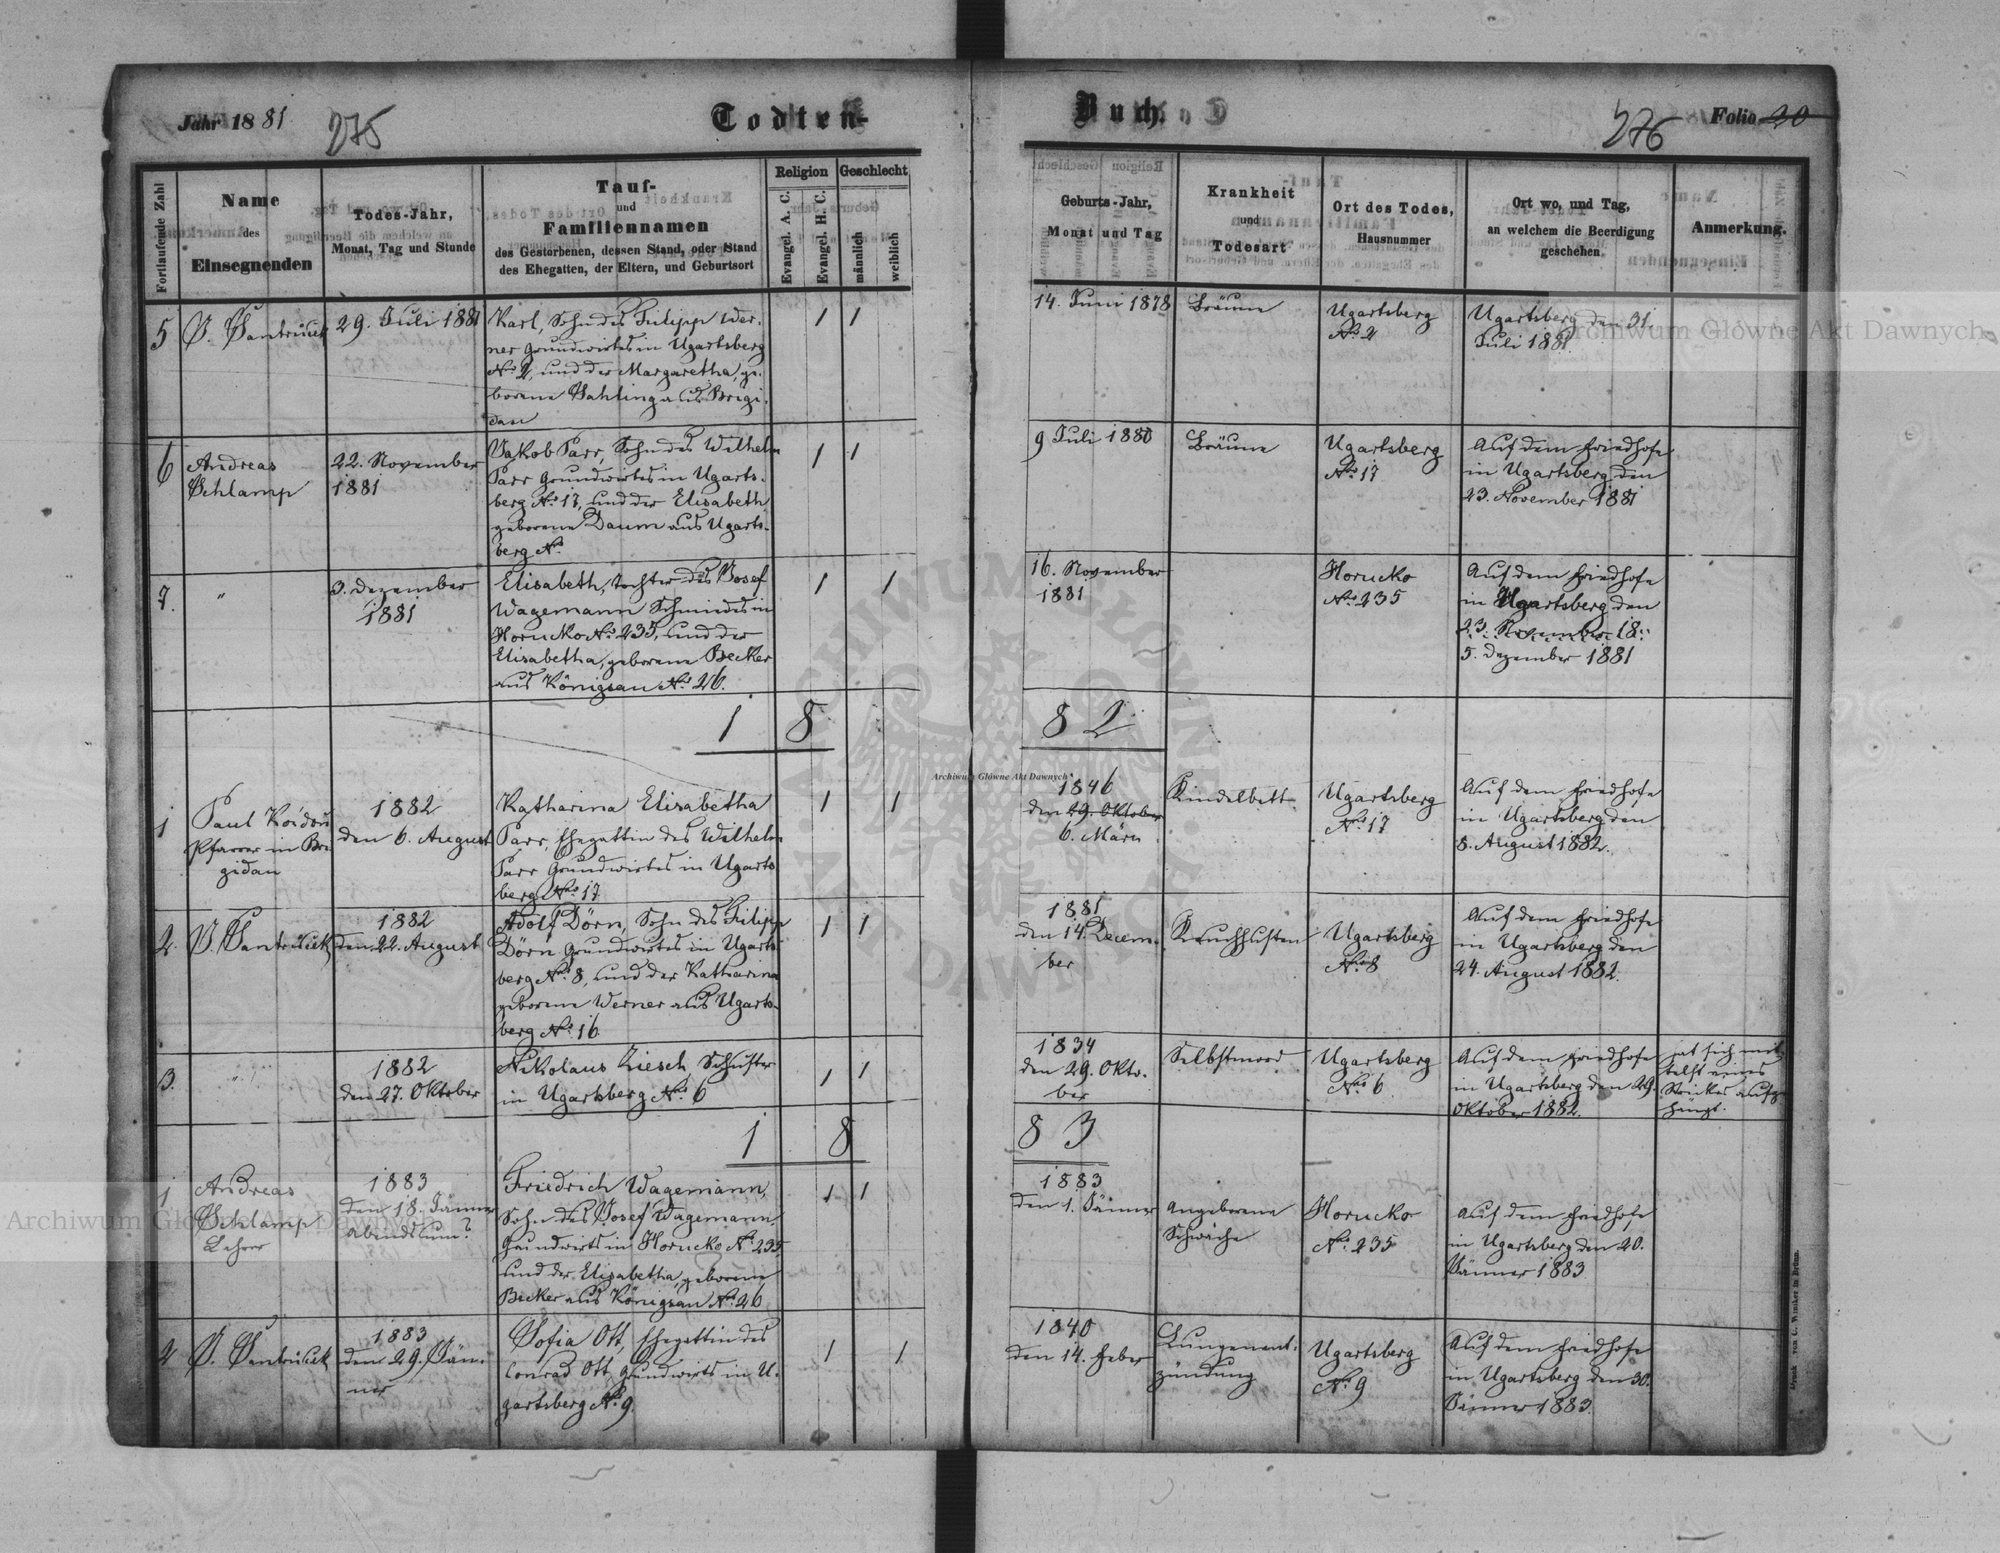 Jahr 1881
275
Todten-
Buch.
276
Folio 30
Fortlaufende Zahl
Name
des
Einsegnenden
Todes-Jahr,
Monat, Tag und Stunde
Tauf-
und
Familiennamen
des Gestorbenen, dessen Stand, oder Stand
des Ehegatten, der Eltern, und Geburtsort
Religion
Evangel. A. C.
Evangel. H. C.
Geschlecht
männlich
weiblich
Geburts-Jahr,
Monat und Tag
Krankheit
und
Todesart
Ort des Todes,
Hausnummer
Ort wo, und Tag,
an welchem die Beerdigung
geschehen.
Anmerkung.
5
29. Juli 1881
Karl, Sohn des Filipp Wer-
ner Grundwirtes in Ugartsberg
No 2, und der Margaretha, ge-
borene Bahling aus Brigi-
dau
1 1
14. Juni 1878
Bräune
Ugartsberg
No 2
Ugartsberg den 31
Juli 1881
6
Andreas
Schlamp
22. November
1881
Jakob Parr, Sohn des Wilhelm
Parr Grundwirtes in Ugarts-
berg No 17, und der Elisabeth
geborene Daum aus Ugarts-
berg No
1 1
9 Juli 1880
Bräune
Ugartsberg
No 17
Auf dem Friedhofe
in Ugartsberg den
23. November 1881
7.
"
3. Dezember
1881
Elisabeth, Tochter des Josef
Wagemann Schmiedes in
Horucko No 235, und der
Elisabetha, geborene Becker
aus Königsau No 26.
1 1
16. November
1881
Horucko
No 235
Auf dem Friedhofe
in Ugartsberg den
23. November 18
5. Dezember 1881
1 8 8 2
1
Paul
Pfarrer in Bri-
gidau
1882
den 6. August
Katharina Elisabetha
Parr, Ehegattin des Wilhelm
Parr Grundwirtes in Ugarts
berg No 17
1 1
1846
den 29. Oktober
6. März
Kindelbett
Ugartsberg
No 17
Auf dem Friedhofe
in Ugartsberg den
8. August 1882.
2.
1882
den 22. August
Adolf Dörn, Sohn des Filipp
Dörn Grundwirtes in Ugarts-
berg No 8, und der Katharina
geborene Werner aus Ugarts-
berg No 16
1 1
1881
den 14. Decem-
ber
Keuchhusten
Ugartsberg
No 8
Auf dem Friedhofe
in Ugartsberg den
24. August 1882.
3.
"
1882
den 27. Oktober
Nikolaus Ziesch Schuster
in Ugartsberg No 6
1 1
1834
den 29. Okto-
ber
Selbstmord
Ugartsberg
No 6
Auf dem Friedhofe
in Ugartsberg den 29.
Oktober 1882.
hat sich mit-
telst eines
Strickes aufge-
hängt.
1 8 8 3
1
Andreas
Schlamp
Lehrer
1883
den 18. Jänner
abends um ?
Friedrich Wagemann,
Sohn des Josef Wagemann,
Grundwirts in Horucko No 235
und der Elisabetha, geborene
Becker aus Königsau No 26
1 1
1883
den 1. Jänner
Angeborene
Schwäche
Horucko
No 235
Auf dem Friedhofe
in Ugartsberg den 20.
Jänner 1883
2
1883
den 29. Jän-
ner
Sofia Ott, Ehegattin des
Conrad Ott, Grundwirts in U-
gartsberg No 9.
1 1
1840
den 14. Feber
Lungenent-
zündung
Ugartsberg
No 9
Auf dem Friedhofe
in Ugartsberg den 30.
Jänner 1883.
Druck von C. Winiker in Brünn.
Archiwum Główne Akt Dawnych
Archiwum Główne Akt Dawnych
Archiwum Główne Akt Dawnych
ARCHIWUM GŁÓWNE AKT DAWNYCH